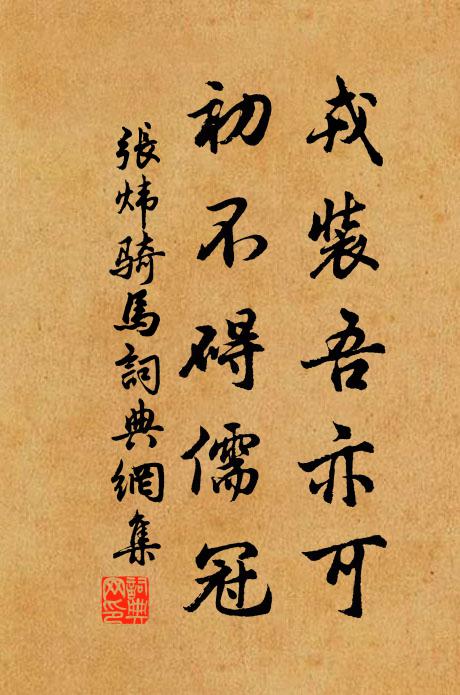 戎裝吾亦可
初不碍儒冠
張煒騎馬詞典網集
詞典
网印